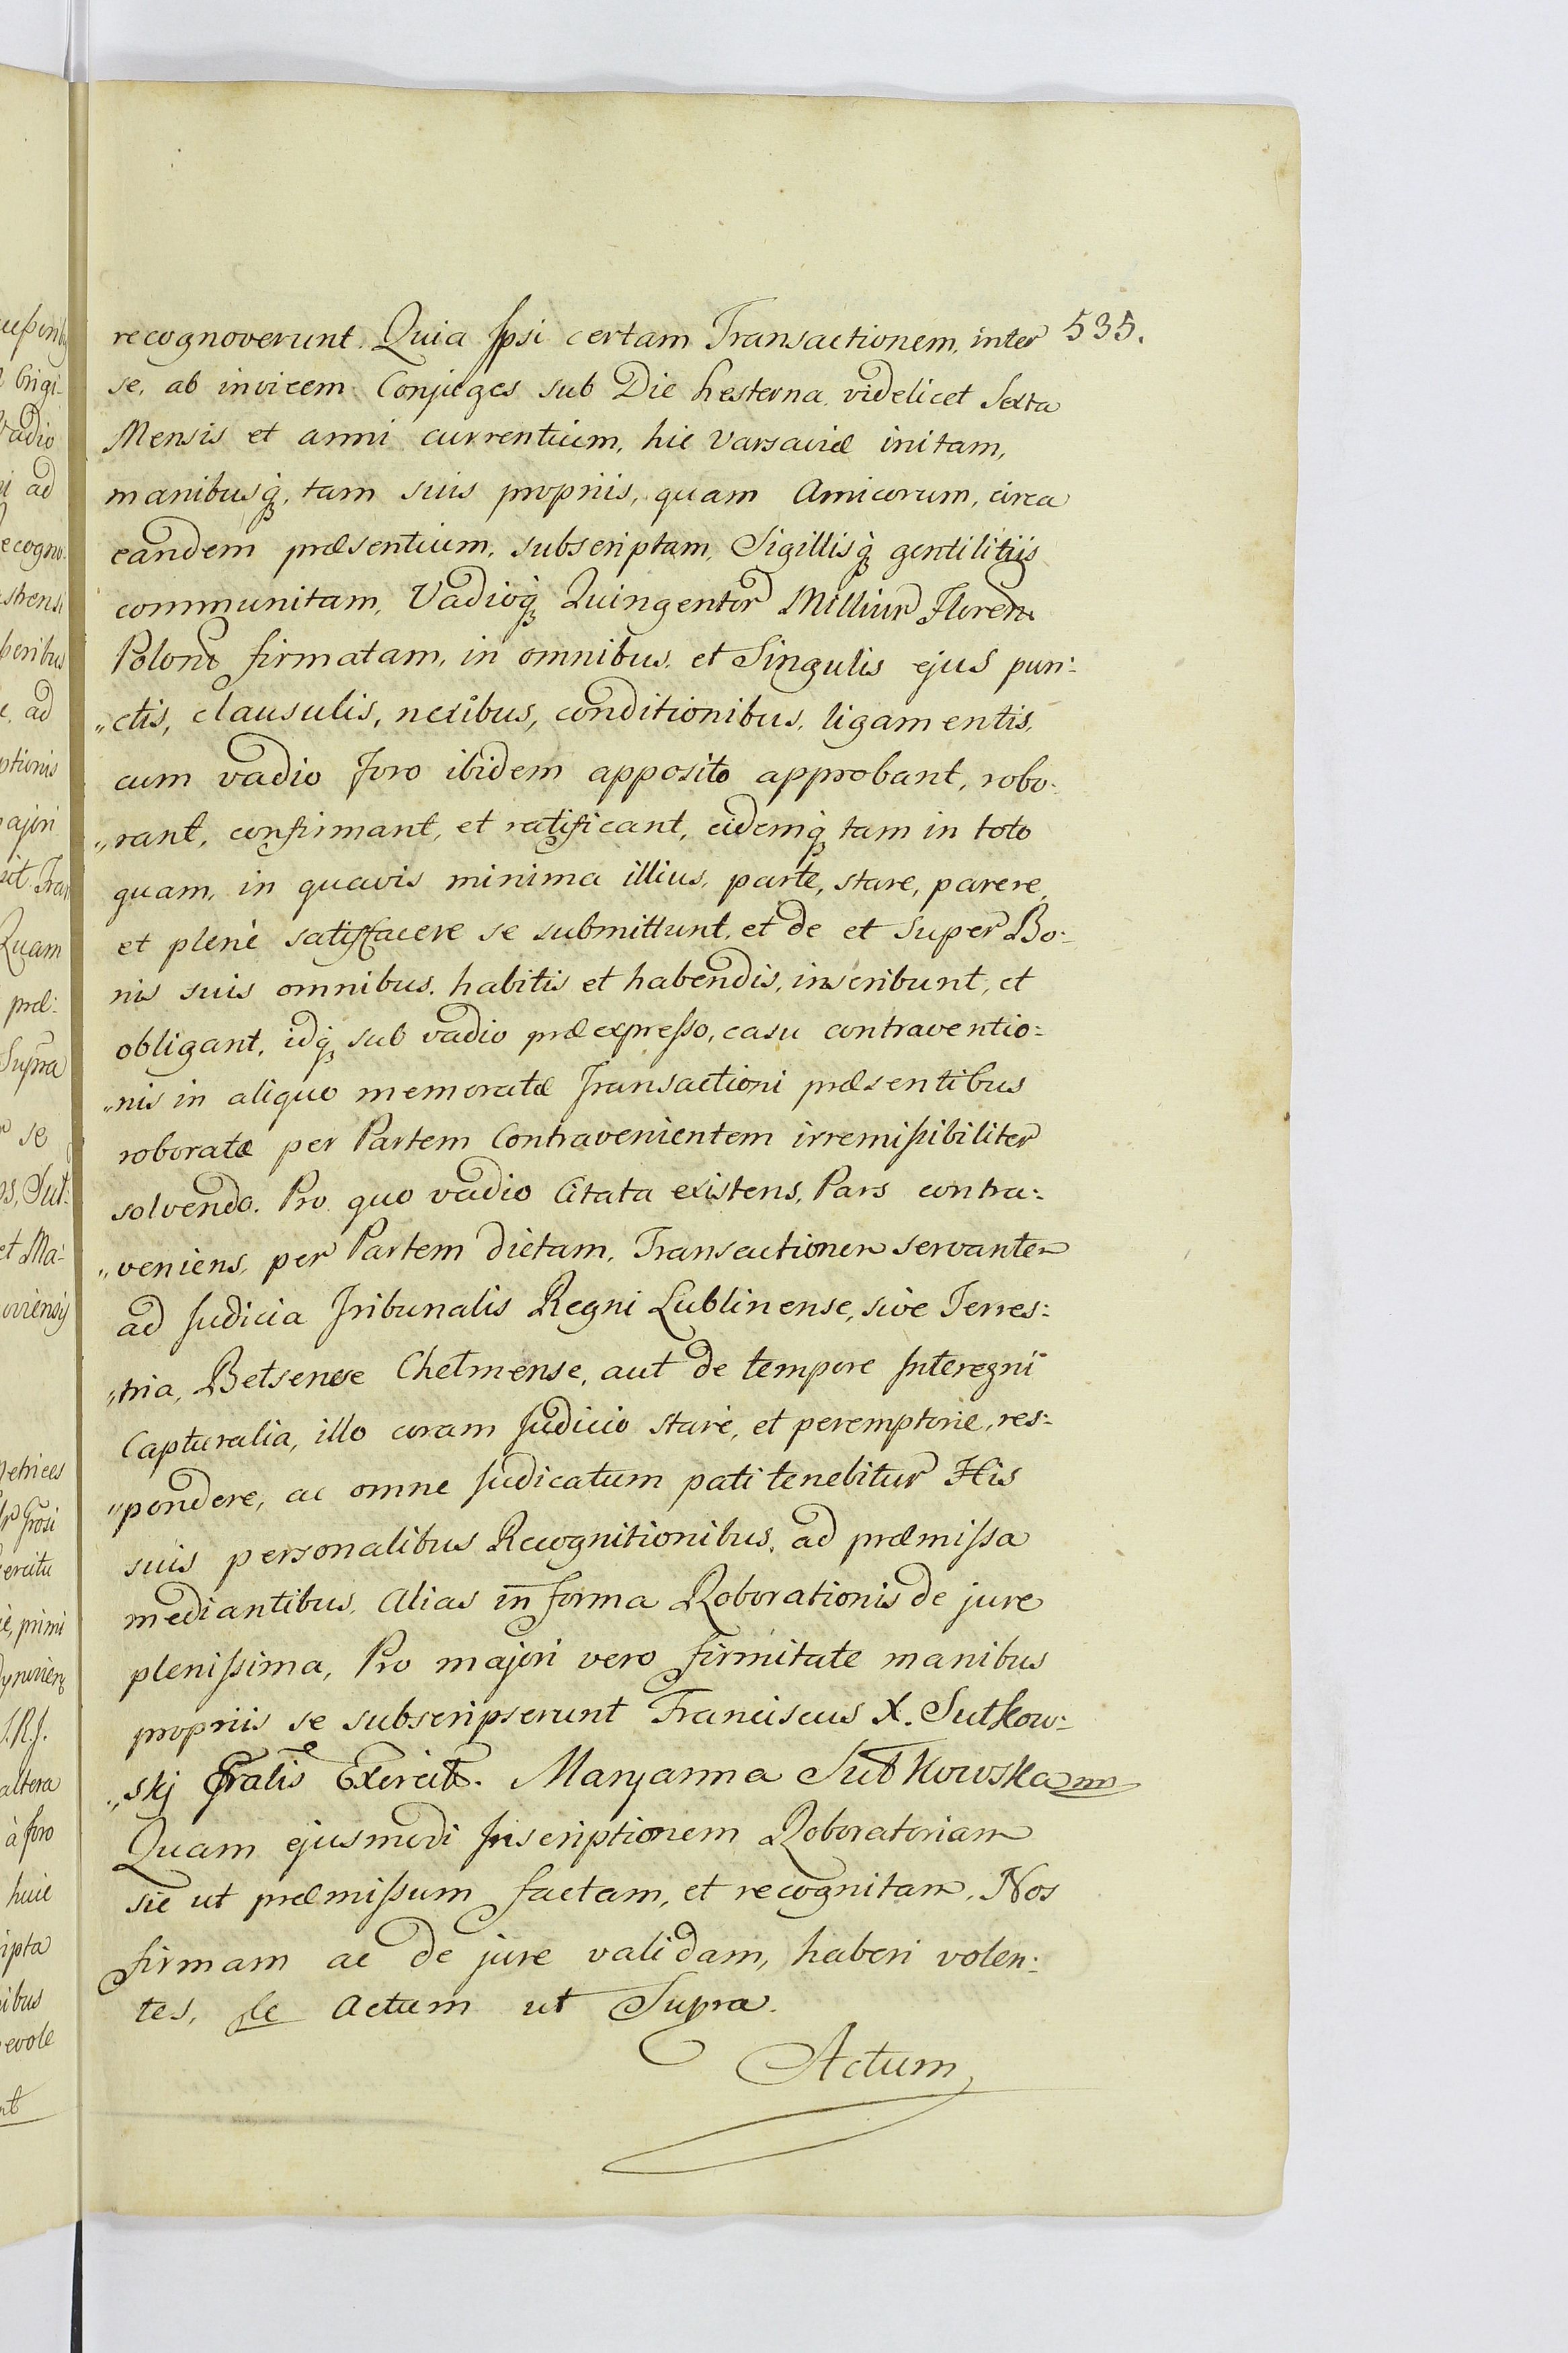 recognoverunt. Quia Ipsi certam Transactionem, inter 535.
se, ab invicem Conjuges sub Die hesterna videlicet Sexta
Mensis et anni currentium, hic Varsaviæ initam,
manibusq, tam suis propriis, quam Amicorum, circa
eandem præsentium, subscriptam, Sigillisq gentilitiis
communitam, Vadioq Quingentor Millium Floren
Polono firmatam, in omnibus et Singulis ejus pun:
„ctis, clausulis, nexibus, conditionibus, ligamentis,
cum vadio foro ibidem apposito approbant, robo:
„rant, confirmant, et ratificant, eidemq tam in toto
quam, in quavis minima illius, parte, stare, parere,
et plenè satisfacere se submittunt, et de et Super Bo:
nis suis omnibus, habitis et habendis, inscribunt, et
obligant, idq sub vadio præexpresso, casu contraventio:
„nis in aliquo memoratæ Transactioni præsentibus
roboratæ per Partem Contravenientem irremissibiliter
solvendo. Pro quo vadio Citata existens, Pars contra:
„veniens, per Partem dictam, Transactionem servantem
ad Judicia Tribunalis Regni Lublinense, sive Terres:
„tria, Betsense Chetmense, aut de tempore Interegni
Capturalia, illo coram Judicio stare, et peremptorie, res:
„pondere, ac omne Judicatum pati tenebitur His
suis personalibus Recognitionibus, ad præmissa
mediantibus, Alias in forma Roborationis de jure
plenissima, Pro majori vero firmitate manibus
propriis se subscripserunt Franciscus X. Sutkow:
„skj Gralis Exercit. Maryanna Sutkowska mp
Quam ejusmodi Inscriptionem Roboratoriam
sic ut præmissum factam, et recognitam, Nos
firmam ac de jure validam, haberi volen:
tes, Actum ut Supra.
Actum